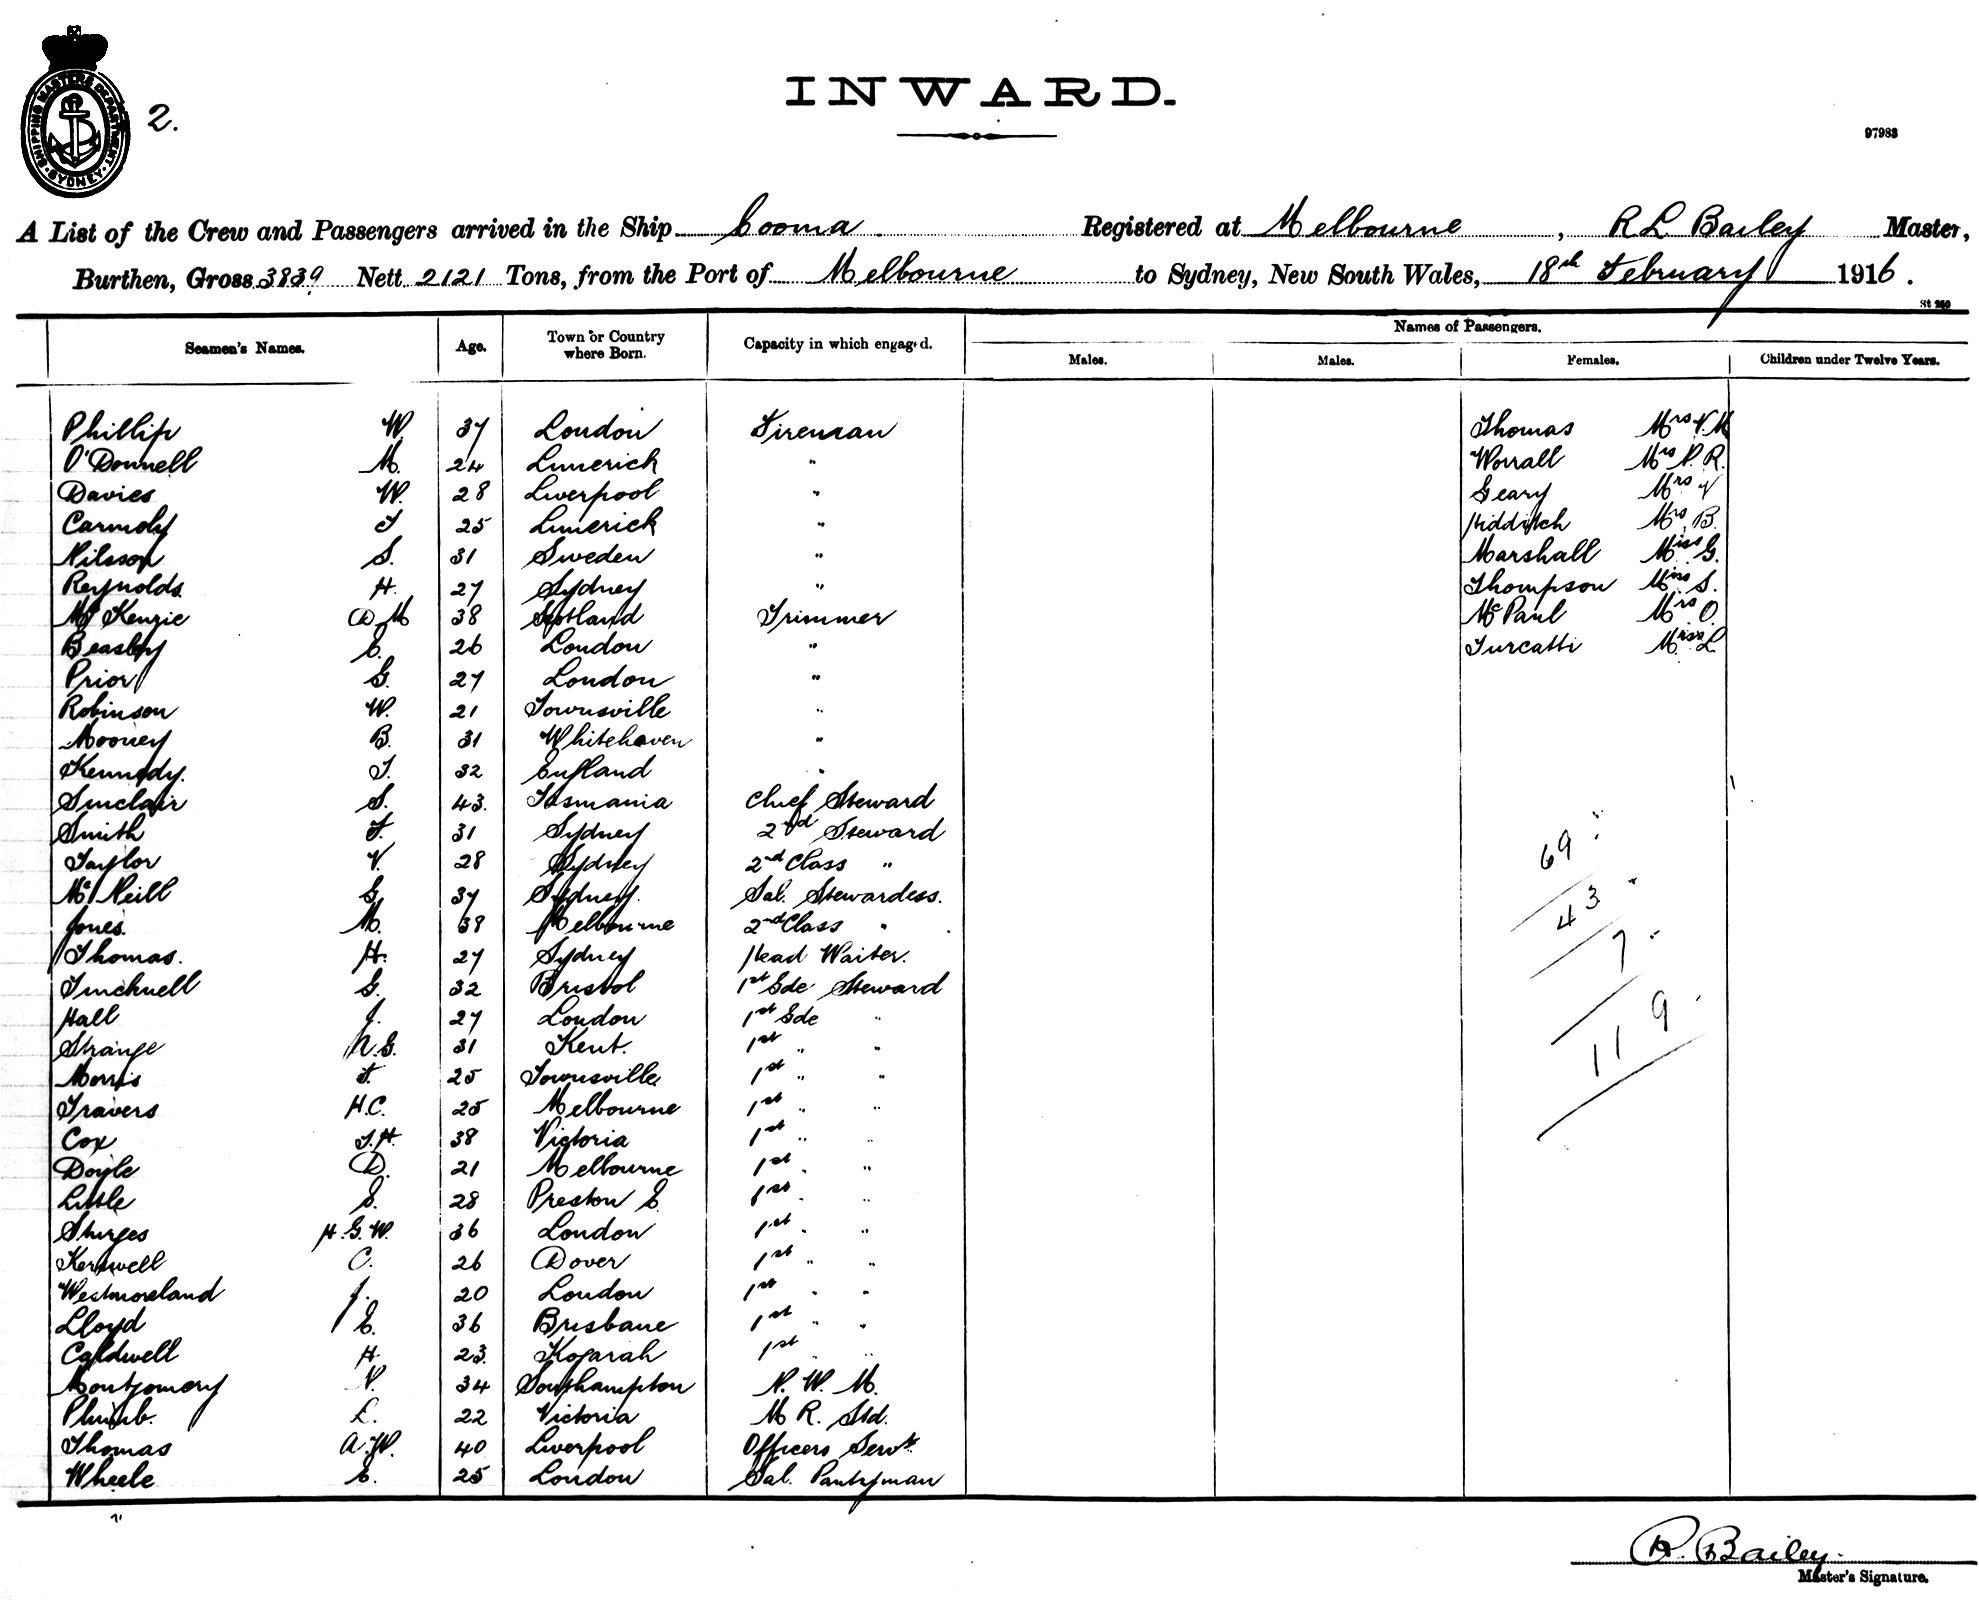 SHIPPING MASTERS DEPARTMENT · SYDNEY ·
2.
INWARD.
97983
A List of the Crew and Passengers arrived in the Ship Cooma. Registered at Melbourne, R L Bailey Master,
Burthen, Gross 3839 Nett 2121 Tons, from the Port of Melbourne to Sydney, New South Wales, 18th February 1916.
St 250
Seamen's Names. Age. Town or Country where Born. Capacity in which engaged. Names of Passengers.
Males. Males. Females. Children under Twelve Years.
Phillip W. 37 London Fireman Thomas Mrs V. M
O'Donnell M. 24 Limerick " Worrall Mrs N. R.
Davies W. 28 Liverpool " Geary Mrs V
Carmody T 25 Limerick " Hidditch Mrs B.
Nilsson S. 31 Sweden " Marshall Miss G.
Reynolds H. 27 Sydney " Thompson Mrs S.
McKenzie D M 38 Scotland Trimmer McPaul Mrs O.
Beasley E. 26 London " Turcatti Miss L.
Prior G. 27 London "
Robinson W. 21 Townsville "
Mooney B. 31 Whitehaven "
Kennedy. T. 32 England "
Sinclair S. 43. Tasmania Chief Steward
Smith F. 31 Sydney 2nd Steward
Taylor V. 28 Sydney 2nd Class "
McNeill G. 37 Sydney. Sal. Stewardess.
Jones. M. 38 Melbourne 2nd Class "
Thomas. H. 27 Sydney Head Waiter.
Tincknell G. 32 Bristol 1st Sde Steward
Hall J. 27 London 1st Sde "
Strange N. G. 31 Kent. 1st " "
Morris F. 25 Townsville 1st " "
Travers H. C. 25 Melbourne 1st " "
Cox T. H. 38 Victoria 1st " "
Doyle D. 21 Melbourne 1st " "
Little E. 28 Preston E. 1st " "
Sturges H. G. W. 36 London 1st " "
Kerswell C. 26 Dover 1st " "
Westmoreland J. 20 London 1st " "
Lloyd E. 36 Brisbane 1st " "
Caldwell H 23. Kogarah 1st " "
Montgomery N. 34 Southampton N. W. M.
Plumb. L. 22 Victoria M R. Std.
Thomas A. W. 40 Liverpool Officers Servt.
Wheele E. 25 London Sal. Pantryman
69
43
7
119
R. Bailey.
Master's Signature.